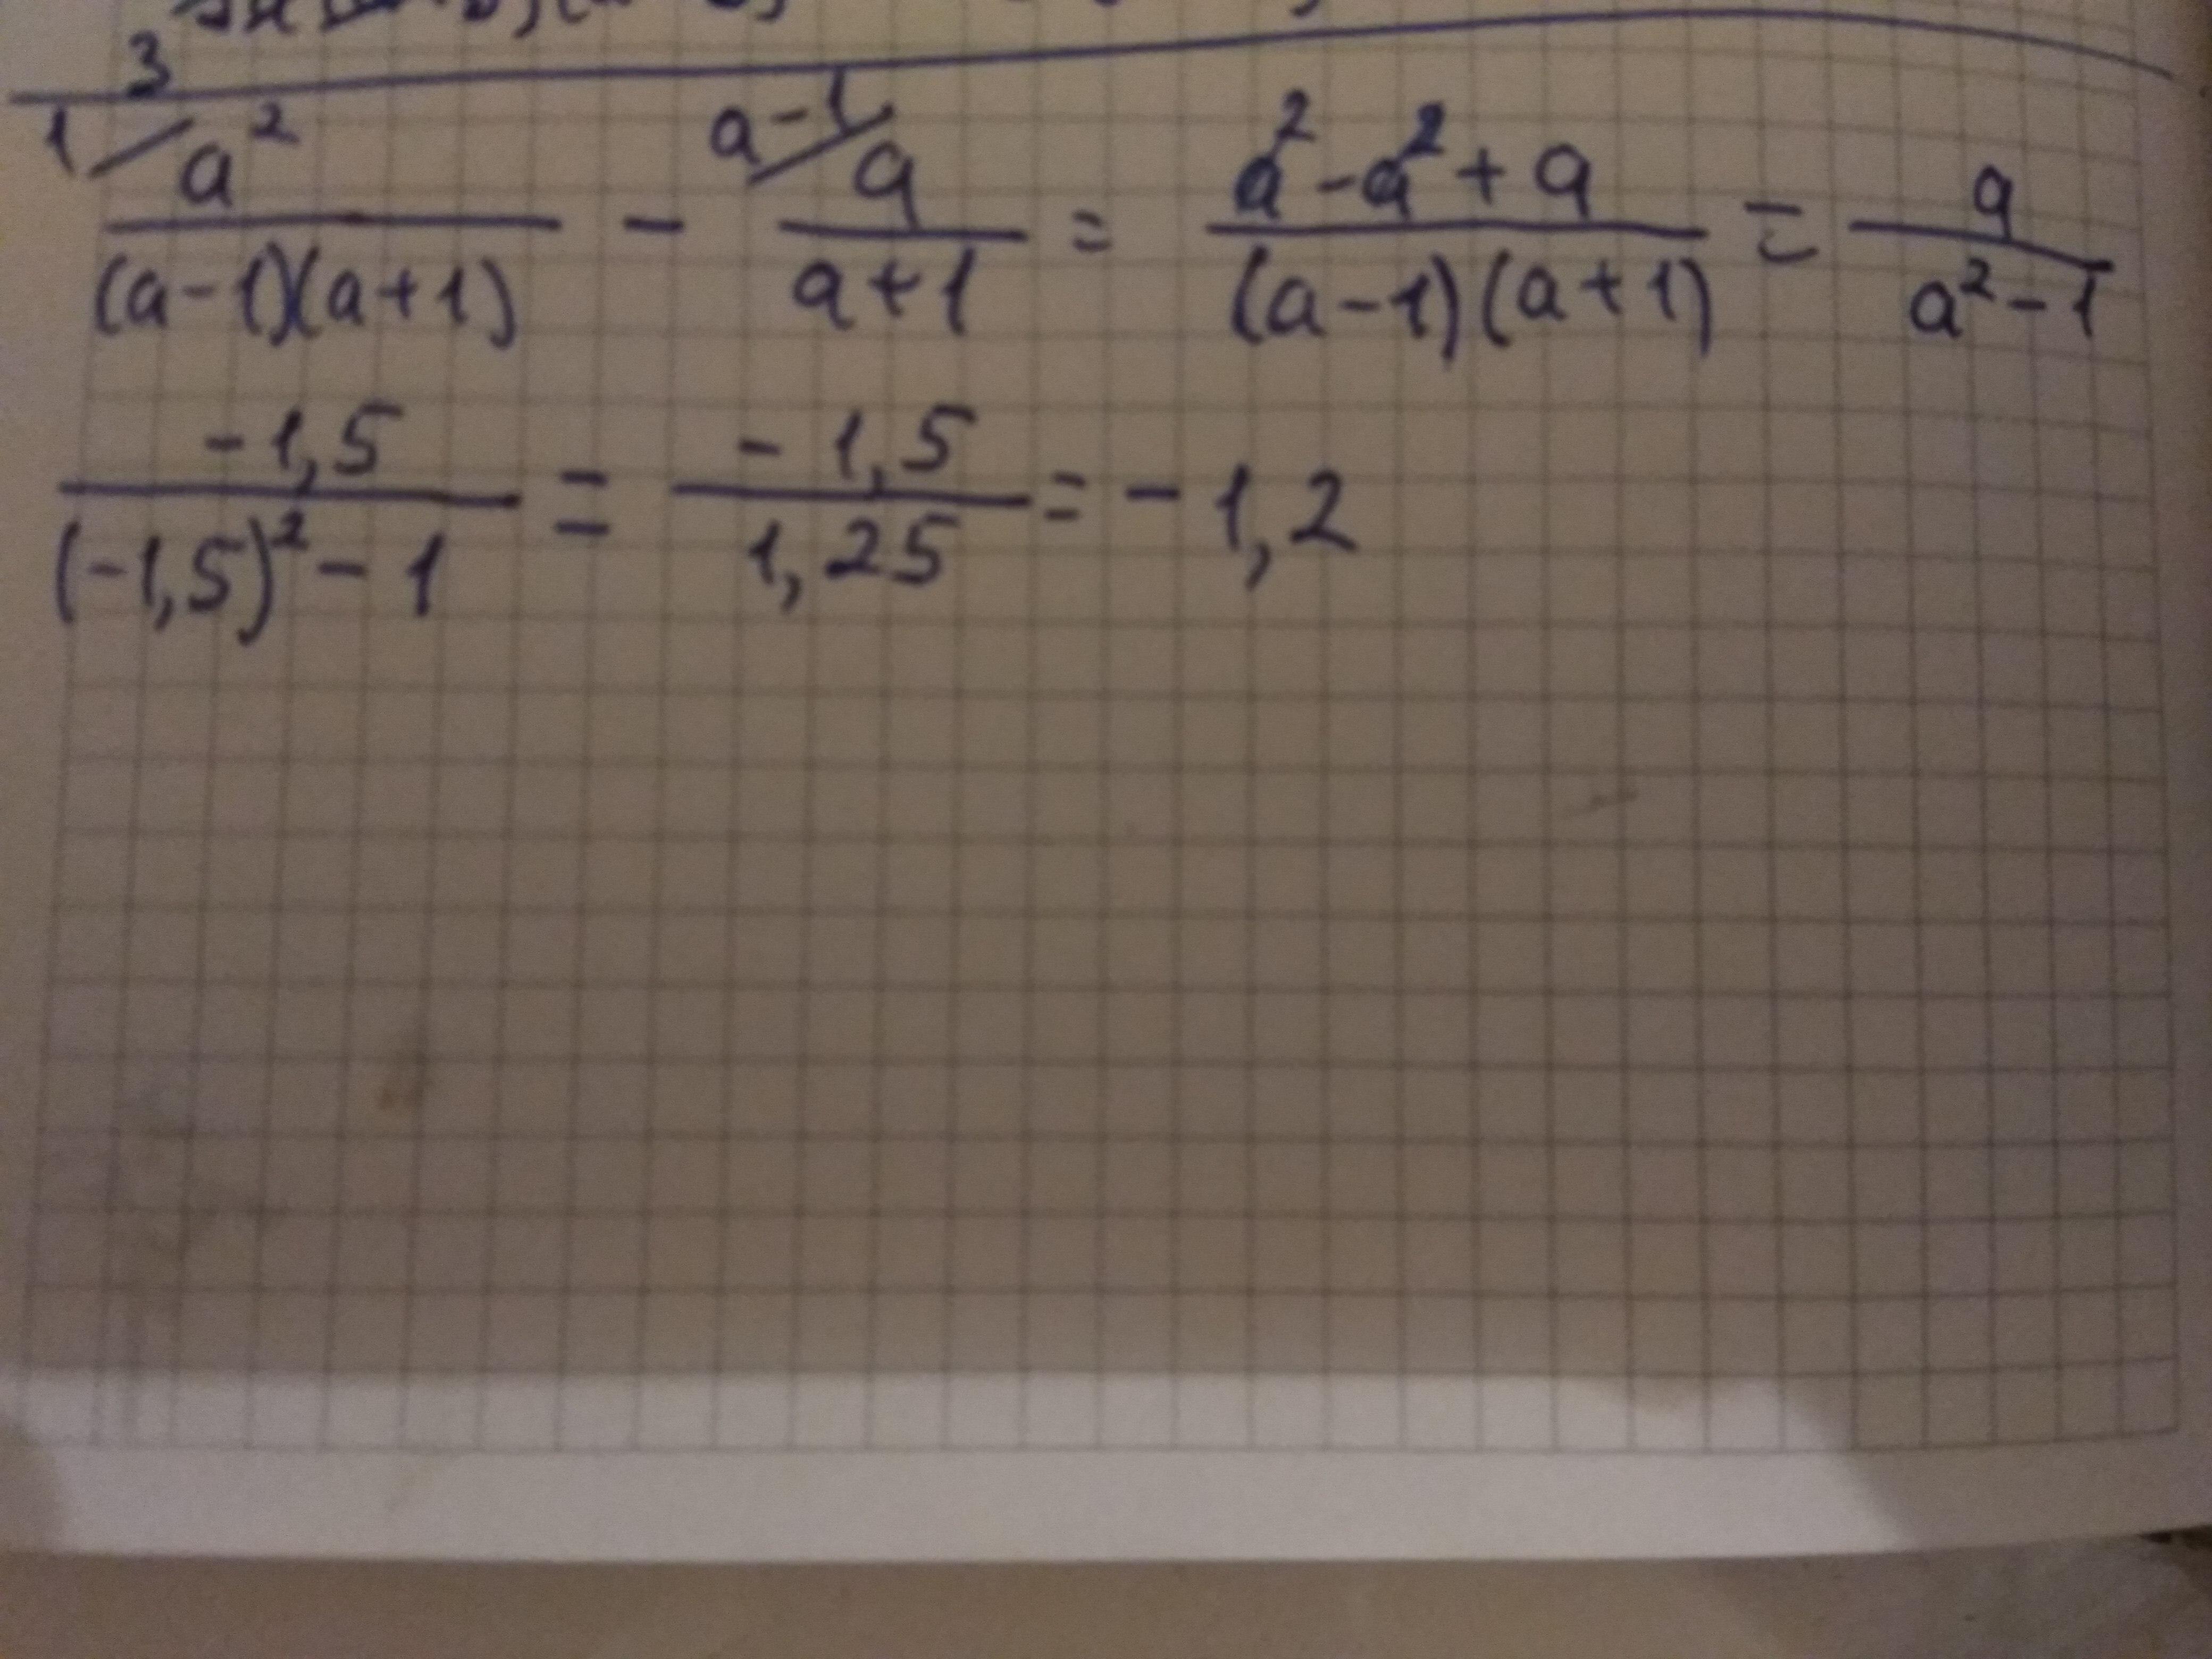 3
1/ a² / (a-1)(a+1) - a-1/ a / a+1 = a²-a²+a / (a-1)(a+1) = a / a²-1
-1,5 / (-1,5)²-1 = -1,5 / 1,25 = -1,2